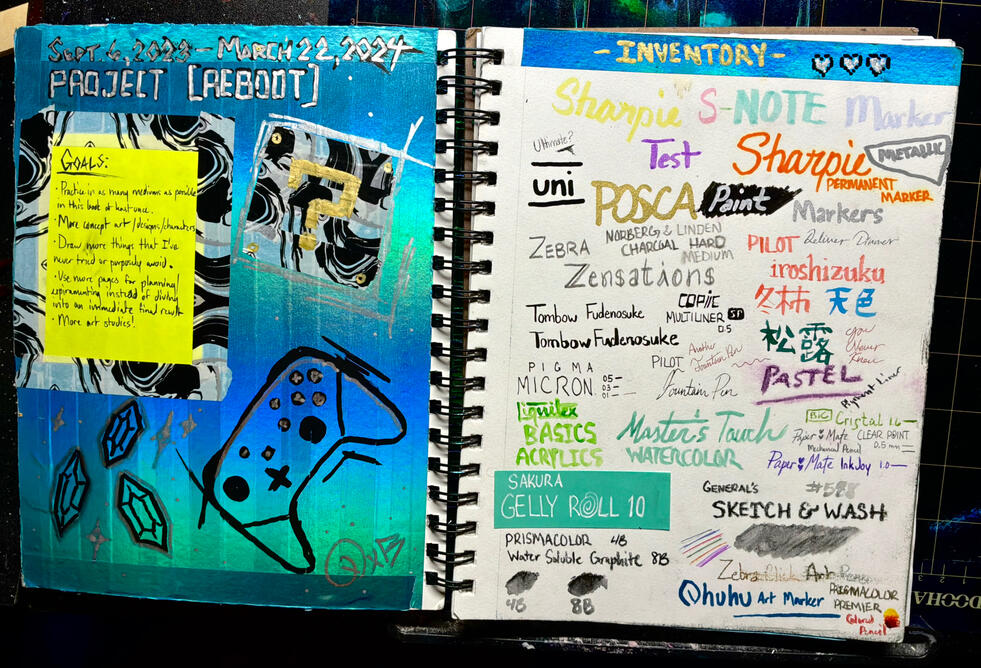 SEPT. 6, 2023 - MARCH 22, 2024
PROJECT [REBOOT]
GOALS:
· Practice in as many mediums as possible
in this book at least once.
· More concept art/designs/characters
· Draw more things that I've
never tried or purposly avoid.
· Use more pages for planning/
expiramenting instead of diving
into an immediate final result
· More art studies!
?
- INVENTORY -
Sharpie S-NOTE Marker
Ultimate?
Test
Sharpie METALLIC
PERMANENT
MARKER
uni
POSCA Paint Markers
ZEBRA
NORBERG & LINDEN
CHARCOAL HARD
MEDIUM
Zensations
PILOT
iroshizuku
冬柿 天色
松露
Tombow Fudenosuke
COPIC
MULTILINER SP
0.5
Tombow Fudenosuke
PIGMA
MICRON 05-
03-
01-
PILOT
Another
Fountain Pen
Fountain Pen
you
Never
Know
PASTEL
Pigment Liner
liquitex
BASICS
ACRYLICS
Master's Touch
WATERCOLOR
BIC Cristal 1.6
Paper Mate CLEAR POINT
Mechanical Pencil 0.5mm
Paper Mate InkJoy 1.0
SAKURA
GELLY ROLL 10
GENERAL'S #588
SKETCH & WASH
PRISMACOLOR 4B
Water Soluble Graphite 8B
4B 8B
Zebra Click Art Pens
Ohuhu Art Marker
PRISMACOLOR
PREMIER
Colored
Pencil